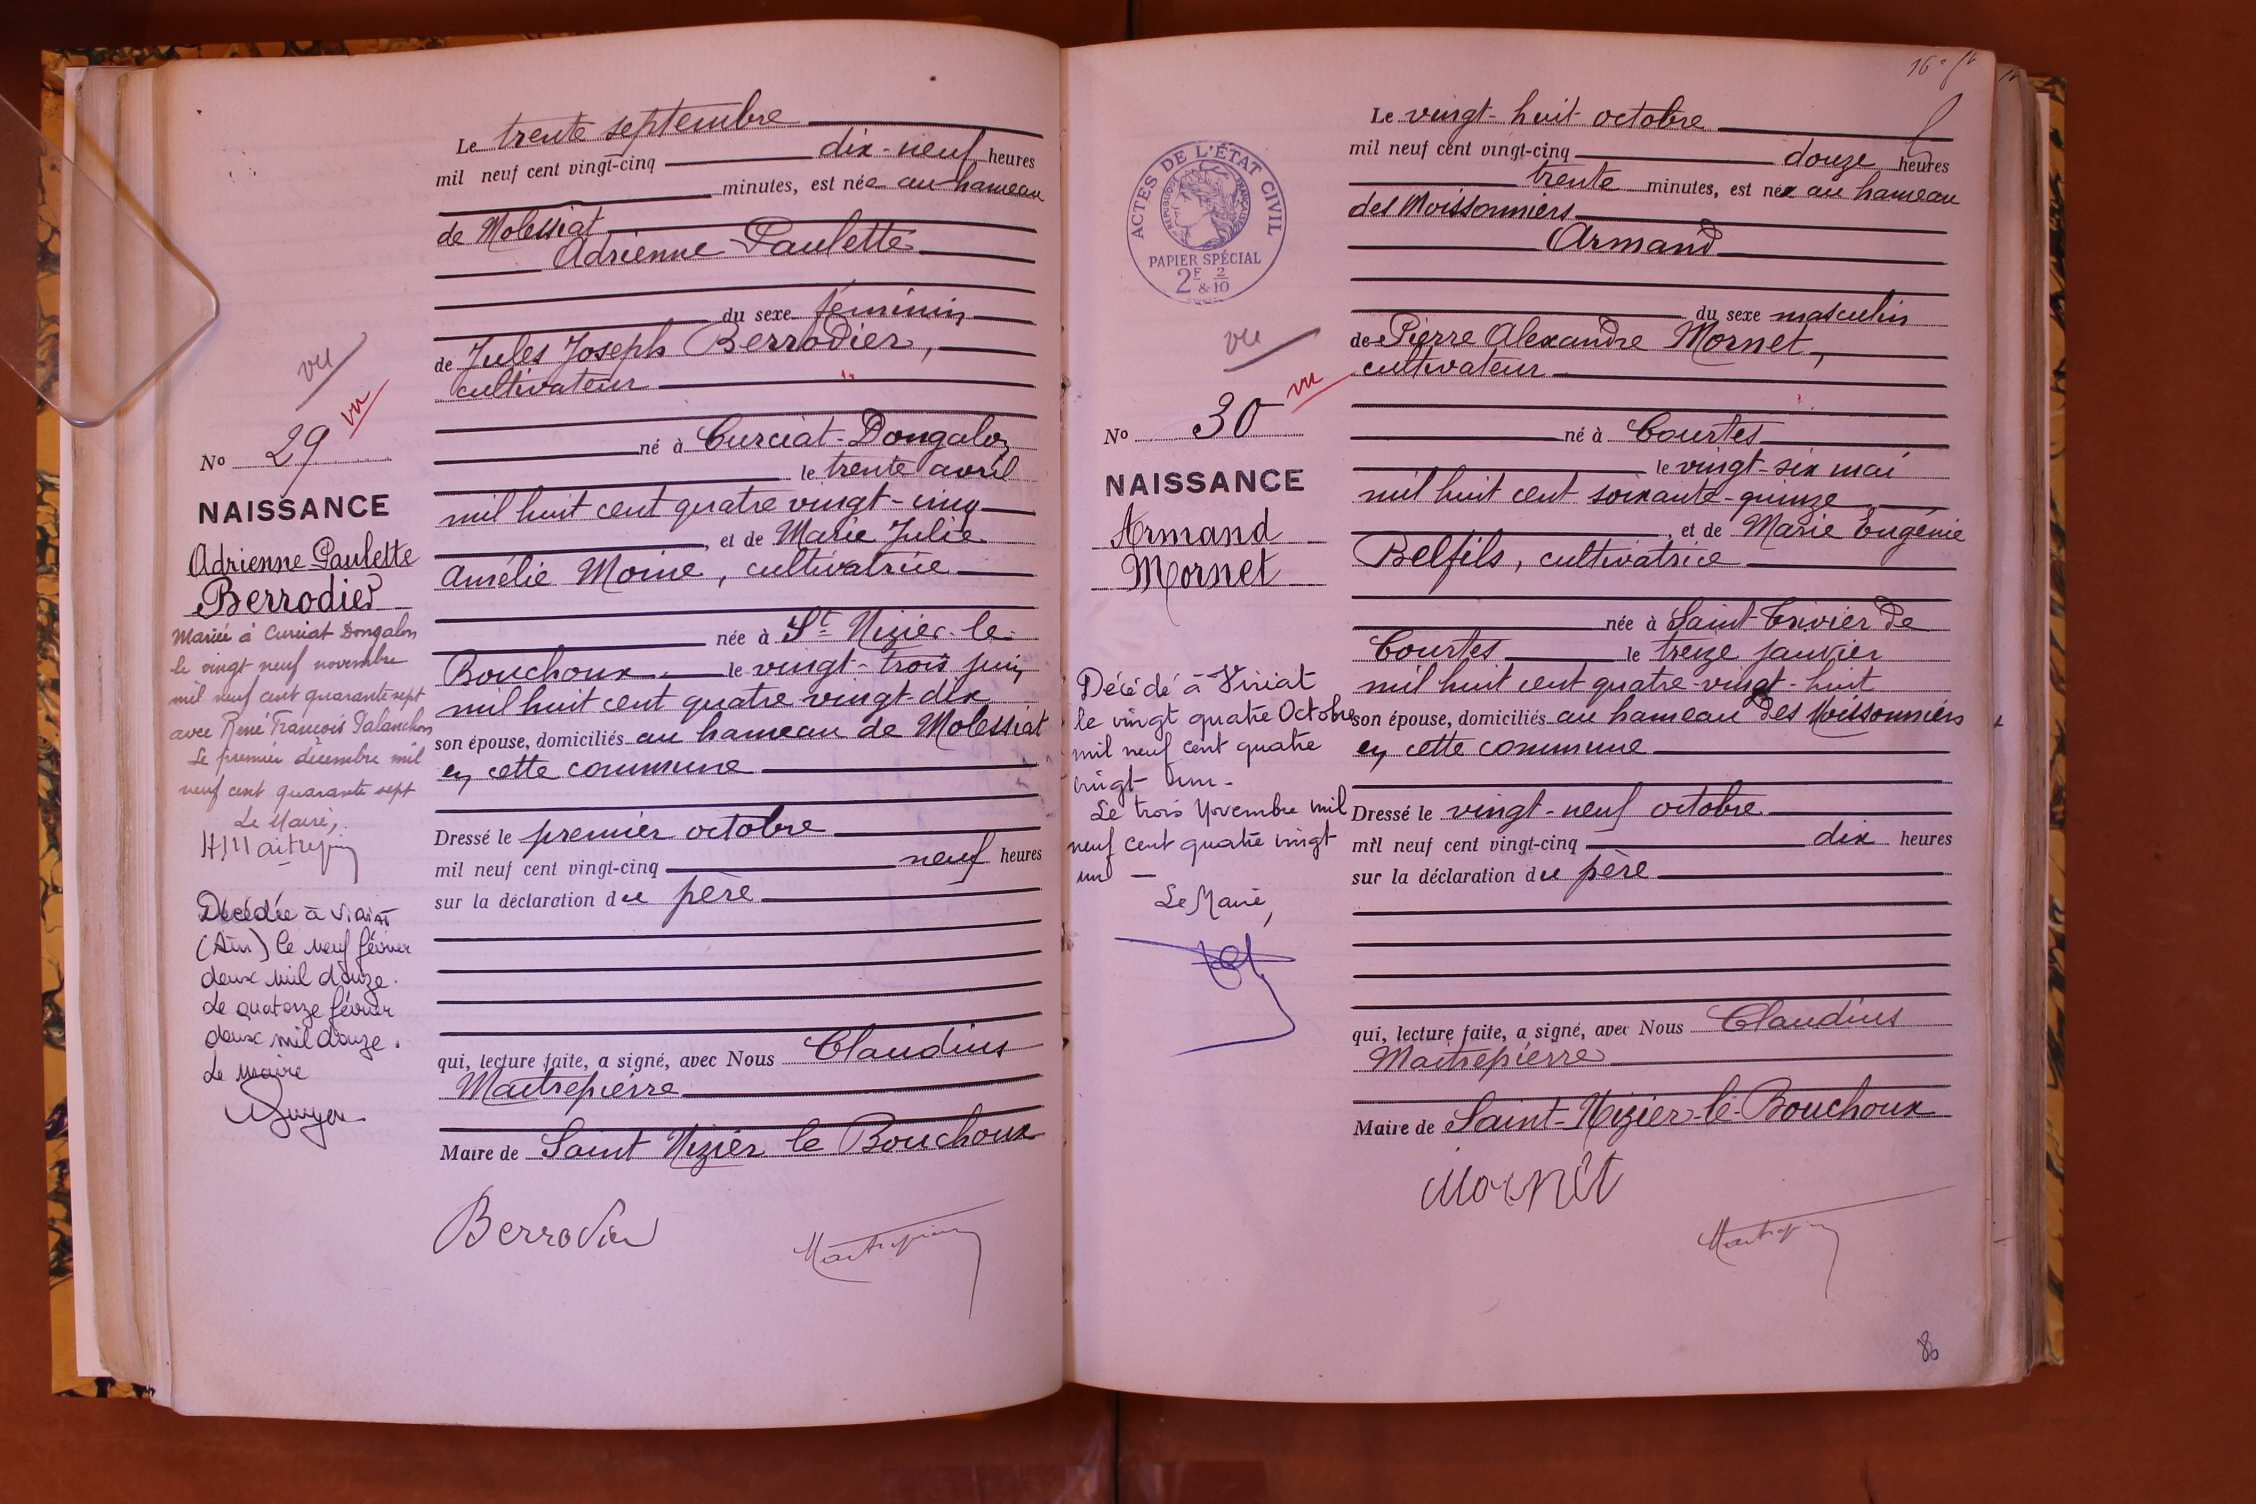 Le trente septembre
mil neuf cent vingt-cinq dix-neuf heures
minutes, est née au hameau
de Molessiat
Adrienne Paulette
du sexe féminin
de Jules Joseph Berrodier,
cultivateur
né à Curciat-Dongalon
le trente avril
mil huit cent quatre vingt-cinq
, et de Marie Julie
Amélie Moine, cultivatrice
née à St Nizier-le-
Bouchoux le vingt-trois juin
mil huit cent quatre vingt-dix
son épouse, domiciliés au hameau de Molessiat
en cette commune
Dressé le premier octobre
mil neuf cent vingt-cinq neuf heures
sur la déclaration du père
qui, lecture faite, a signé, avec Nous Claudius
Maitrepierre
Maire de Saint Nizier le Bouchoux
Berrodier
Maitrepierre
vu
vu
No 29
NAISSANCE
Adrienne Paulette
Berrodier
Mariée à Curciat Dongalon
le vingt neuf novembre
mil neuf cent quarante sept
avec René François Palanchon
Le premier décembre mil
neuf cent quarante sept
Le Maire,
Décédée à Viriat
(Ain) le neuf février
deux mil douze.
Le quatorze février
deux mil douze.
Le Maire
16e
Le vingt-huit octobre
mil neuf cent vingt-cinq douze heures
trente minutes, est né au hameau
des Moissonniers
Armand
du sexe masculin
de Pierre Alexandre Mornet,
cultivateur
né à Courtes
le vingt-six mai
mil huit cent soixante-quinze
, et de Marie Eugénie
Belfils, cultivatrice
née à Saint-Trivier de
Courtes le treize janvier
mil huit cent quatre-vingt-huit
son épouse, domiciliés au hameau des Moissonniers
en cette commune
Dressé le vingt-neuf octobre
mil neuf cent vingt-cinq dix heures
sur la déclaration du père
qui, lecture faite, a signé, avec Nous Claudius
Maitrepierre
Maire de Saint-Nizier-le-Bouchoux
Mornet
Maitrepierre
ACTES DE L'ÉTAT CIVIL
RÉPUBLIQUE FRANÇAISE
PAPIER SPÉCIAL
2F & 2/10
vu
vu
No 30
NAISSANCE
Armand
Mornet
Décédé à Viriat
le vingt quatre Octobre
mil neuf cent quatre
vingt un -
Le trois Novembre mil
neuf cent quatre vingt
un -
Le Maire,